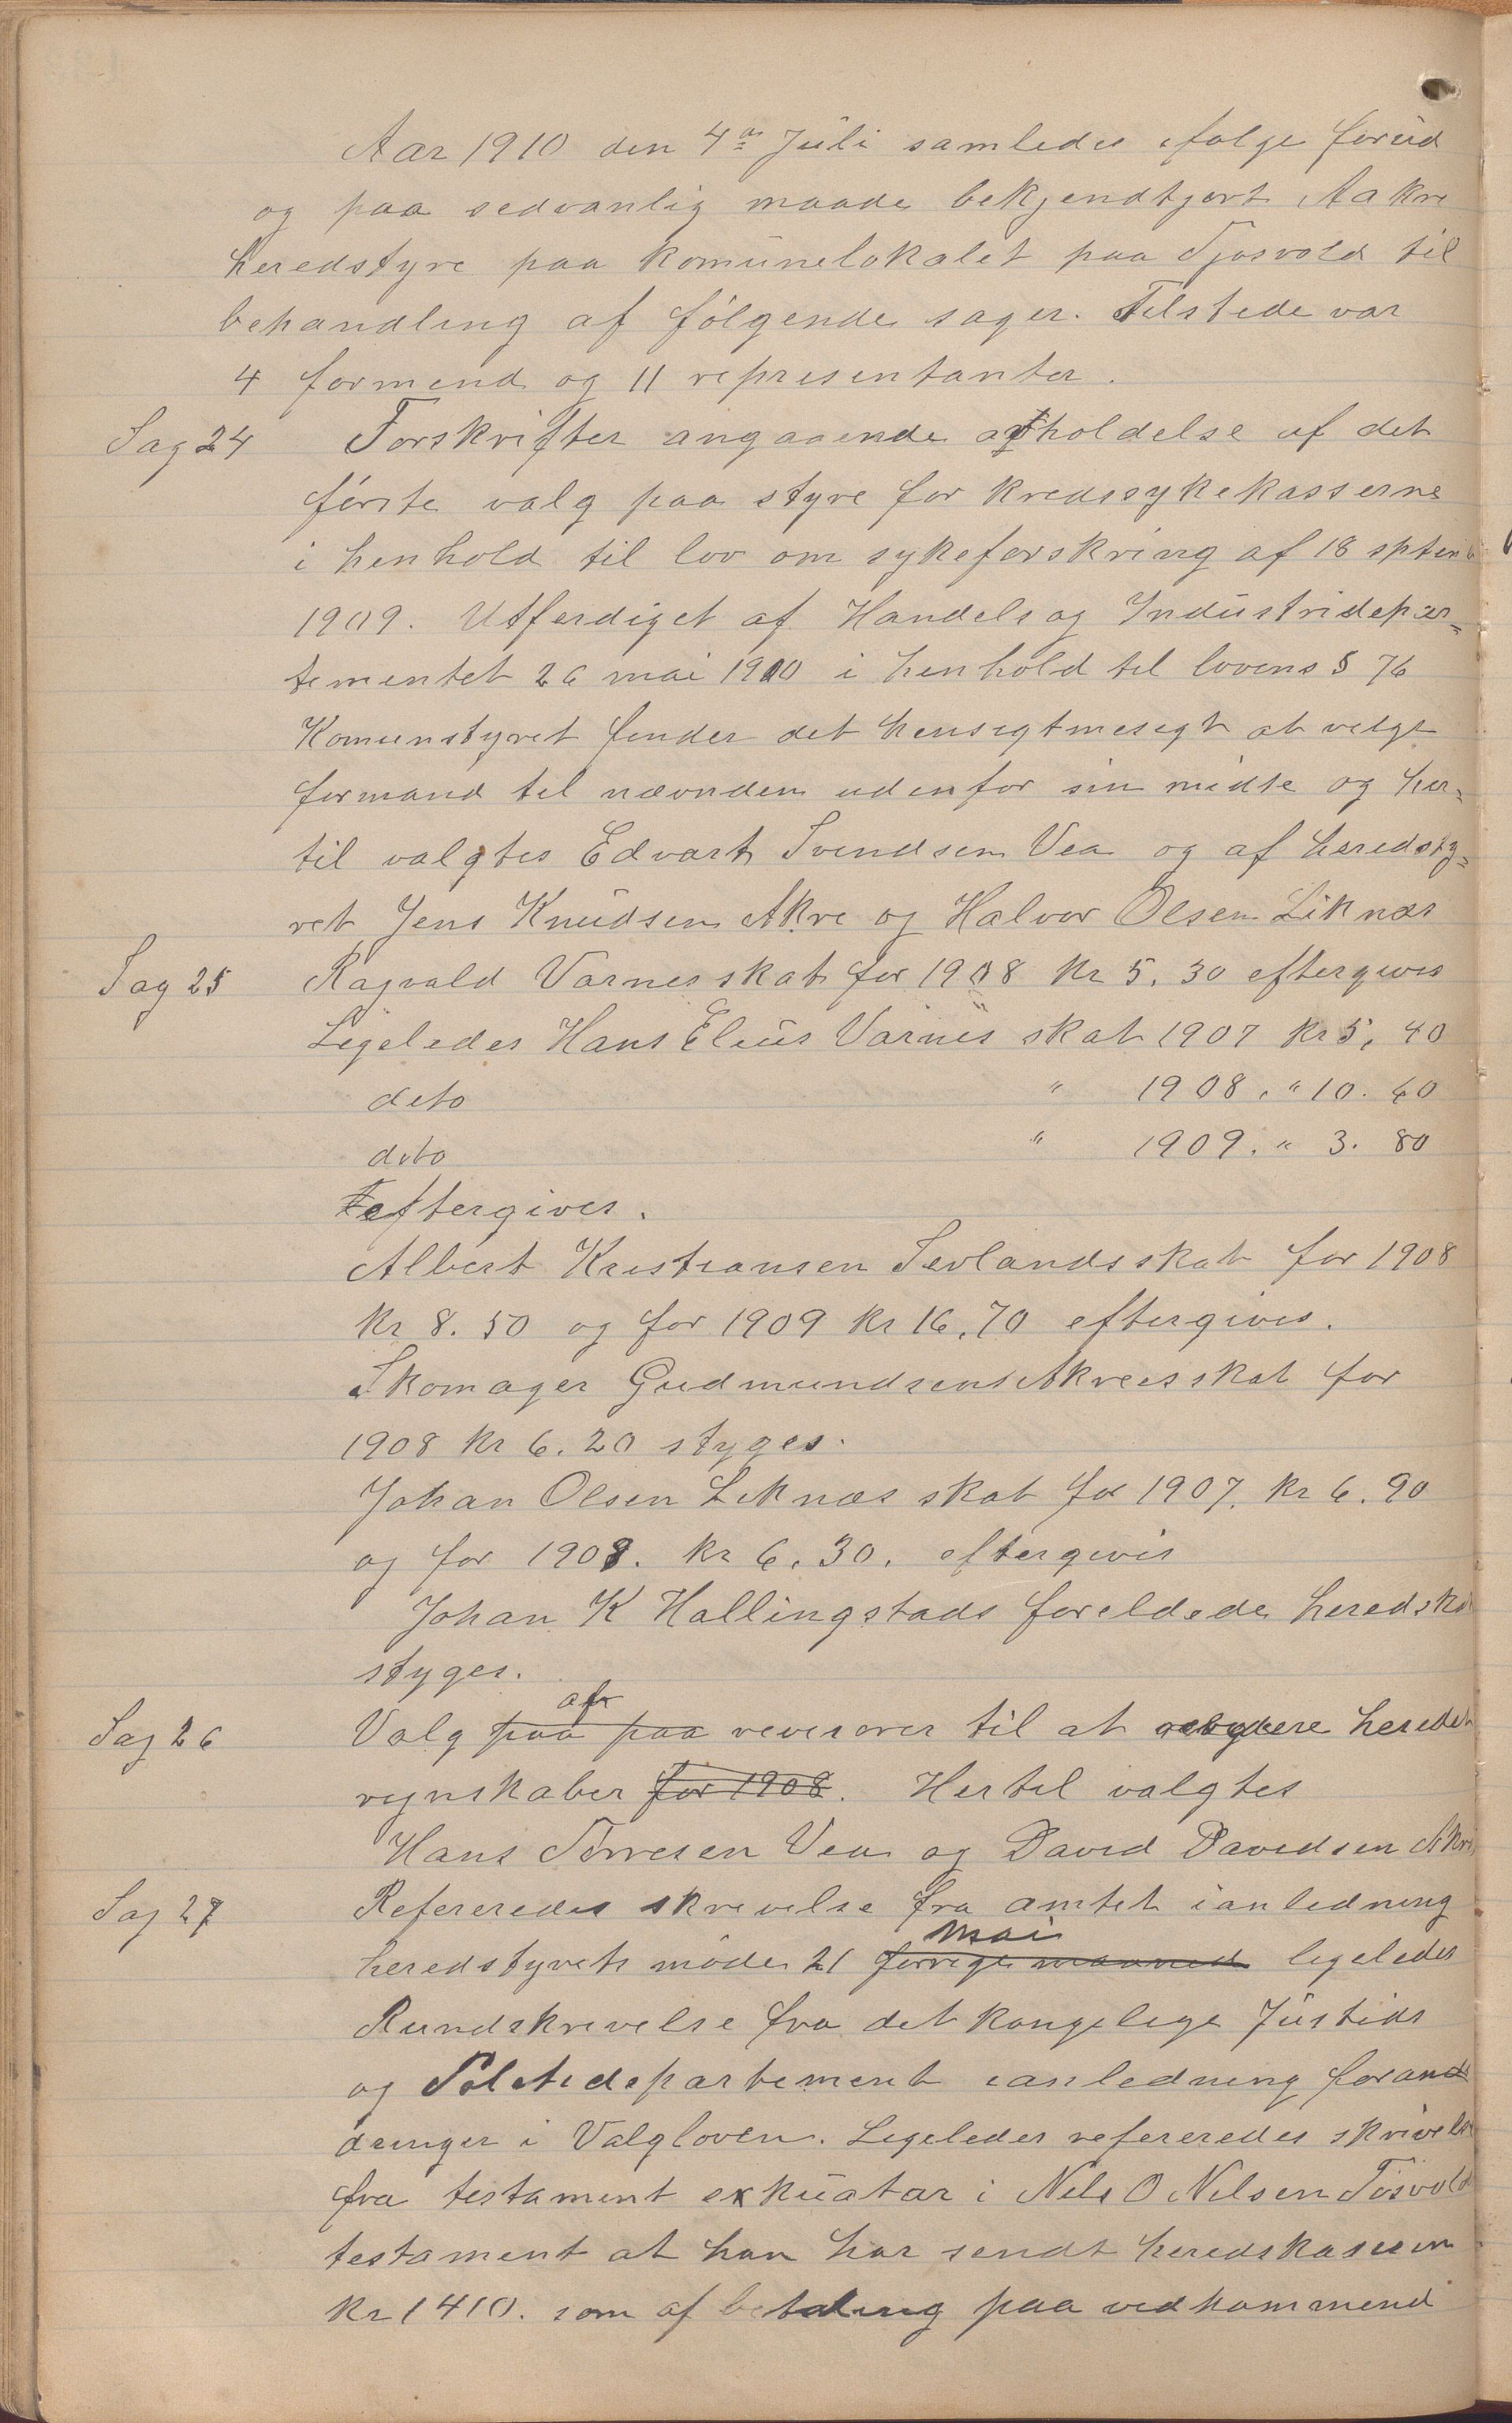 Aar 1910 den 4de Juli samledes ifølge forud
og paa sedvanlig maade bekjendtgjort Aakre
heredstyre paa komunelokalet paa Tjosvold til
behandling af følgende sager. Tilstede var
4 formend og 11 representanter.
Sag 24 Forskrifter angaaende afholdelse af det
første valg paa styre for kredssykekasserne
i henhold til lov om sykeforskring af 18 sptemb
1909. Utferdiget af Handels og Industridepar=
tementet 26 mai 1910 i henhold til lovens § 76
Komunstyret finder det hensigtmesigt at velge
formand til nævnden udenfor sin midte og her=
til valgtes Edvart Svendsen Vea og af heredsty=
ret Jens Knudsen Akre og Halvor Olsen Liknæs
Sag 25 Ragvald Varnes skat for 1908 kr 5.30 eftergives
Ligeledes Hans Elius Varnes skat 1907 kr 5,40
deto " 1908. " 10.60
dito " 1909. " 3.80
eftergives.
Albert Kristiansen Sevlands skat for 1908
kr 8.50 og for 1909 kr 16,70 eftergives.
Skomager Gudmundsens Akres skat for
1908 kr 6.20 styges.
Johan Olsen Liknæs skat for 1907. kr 6.90
og for 1908. kr 6.30. eftergives
Johan K Hallingstads foreldede heredska
styges.
Sag 26 Valg paa paa af revisorer til at revidere hereds
regnskaber for 1908. Hertil valgtes
Hans Torresen Vea og David Davidsen Akre
Sag 27 Refereredes skrivelse fra amtet i anledning
heredstyrets møde 21 forrige maaned mai ligeledes
Rundskrivelse fra det kongelige Justids
og Politidepartement i anledning forand
dringer i Valgloven. Ligeledes refereredes skrivelse
fra testament exkuatar i Nils O Nilsen Tosvold
testament at han har sendt heredskassen
kr 1410. som af betaling paa vedkommend